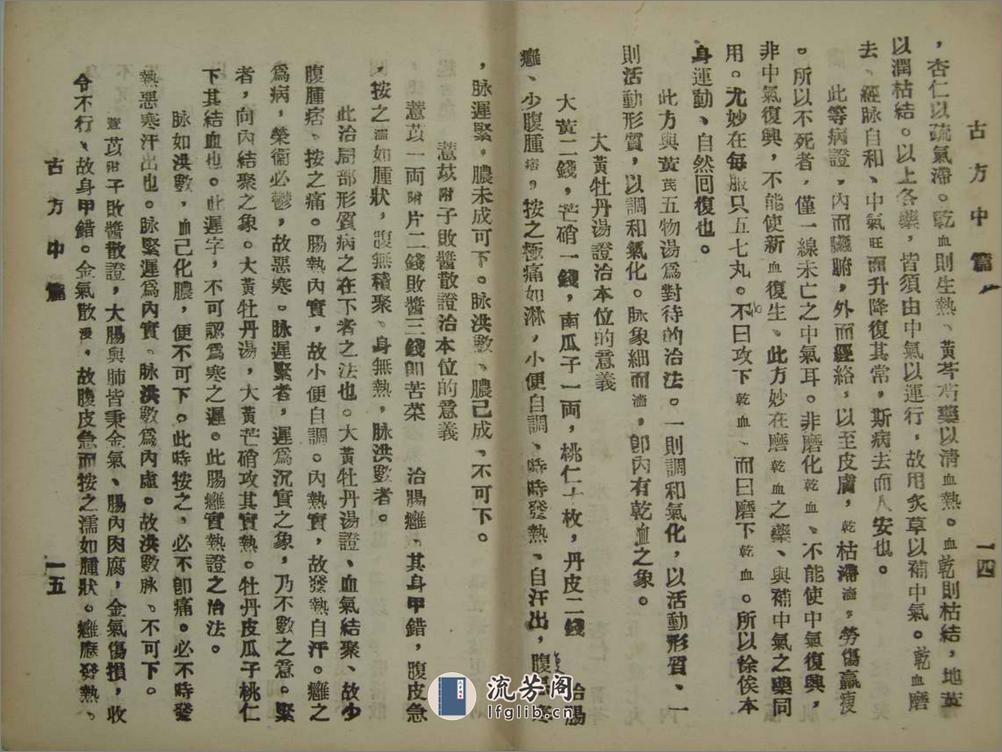 古方中篇
一四
，杏仁以疏氣滯。乾血則生熱、黃芩芍藥以清血熱。血乾則枯結，地黃
以潤枯結。以上各藥，皆須由中氣以運行，故用炙草以補中氣。乾血磨
去、經脉自和、中氣旺而升降復其常，斯病去而人安也。
此等病證，內而臟腑，外而經絡，以至皮膚，乾枯滯澁，勞傷羸瘦
。所以不死者，僅一線未亡之中氣耳。非磨化乾血、不能使中氣復興，
非中氣復興，不能使新血復生、此方妙在磨乾血之藥、與補中氣之藥同
用。尤妙在每服只五七丸。不曰攻下乾血、而曰磨下乾血。所以徐俟本
身運動、自然囘復也。
此方與黃芪五物湯爲對待的治法。一則調和氣化，以活動形質、一
則活動形質，以調和氣化。脉象細而濇，卽內有乾血之象。
大黃牡丹湯證治本位的意義
大黃二錢，芒硝一錢，南瓜子一両，桃仁十枚，丹皮二錢 治腸
癰、少腹腫痞，按之極痛如淋，小便自調、時時發熱、自汗出，復惡寒
，脉遲緊，膿未成可下。脉洪數、膿已成、不可下。
薏苡附子敗醬散證治本位的意義
薏苡一両附片二錢敗醬三錢卽苦菜 治腸癰、其身甲錯，腹皮急
，按之濡如腫狀，腹無積聚、身無熱，脉洪數者。
此治局部形質病之在下者之法也。大黃牡丹湯證、血氣結聚、故少
腹腫痞、按之痛。腸熱內實，故小便自調。內熱實，故發熱自汗。癰之
爲病，榮衛必鬱，故惡寒。脉遲緊者，遲爲沉實之象，乃不數之意。緊
者，向內結聚之象。大黃牡丹湯，大黃芒硝攻其實熱。牡丹皮瓜子桃仁
下其結血也。此遲字，不可認爲寒之遲。此腸癰實熱證之治法。
脉如洪數，血已化膿，便不可下。此時按之，必不卽痛。必不時發
熱惡寒汗出也。脉緊遲爲內實、脉洪數爲內虛。故洪數脉、不可下。
薏苡附子敗醬散證，大腸與肺皆秉金氣、腸內肉腐，金氣傷損，收
令不行、故身甲錯。金氣散漫，故腹皮急而按之濡如腫狀。癰應發熱、
古方中篇
一五
流芳阁
lfglib.cn